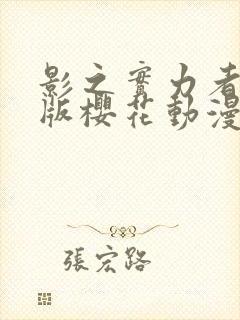 影之實力者
版櫻花動漫
張宏路